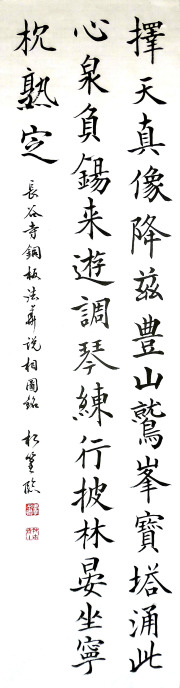 擇天真像降茲豊山鷲峯寶塔涌此
心泉負錫来遊調琴練行披林晏坐寧
枕熟定
長谷寺銅板法華説相圖銘 臨